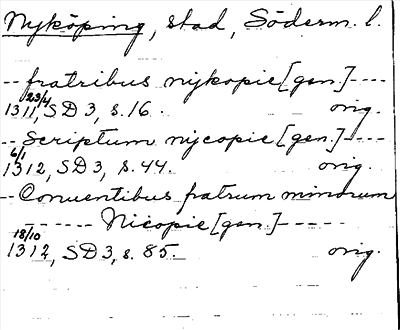 Nyköping, stad, Söderm. l.
-- fratribus nykopie [gen.] ----
1311 23/4, SD 3, s. 16. orig.
-- Scriptum nycopie [gen.] ----
1312 6/1, SD 3, s. 44. orig.
-- Conuentibus fratrum minorum
------ Nicopie [gen.] -----
1312 18/10, SD 3, s. 85. orig.